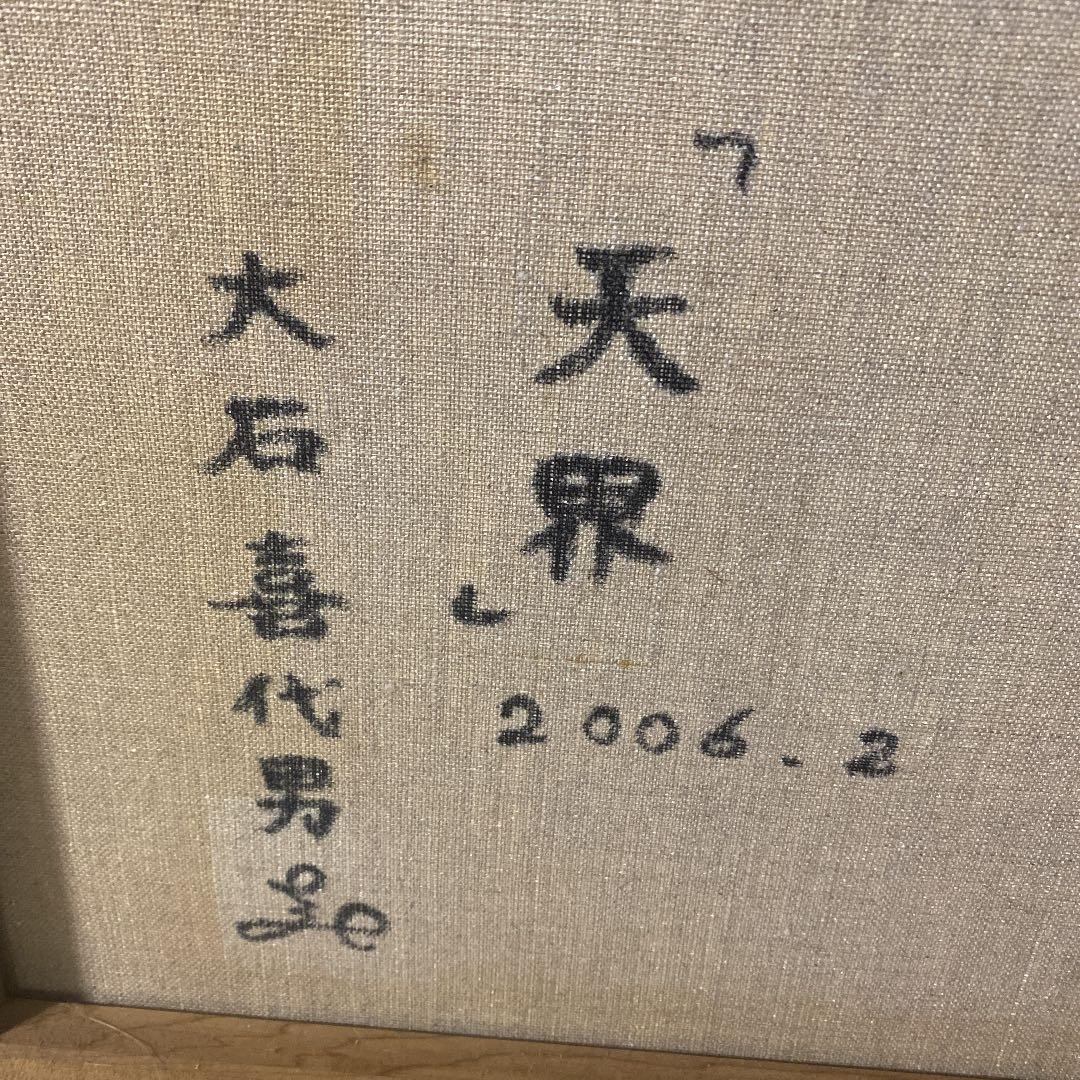 「天界」
2006.2
大石喜代男